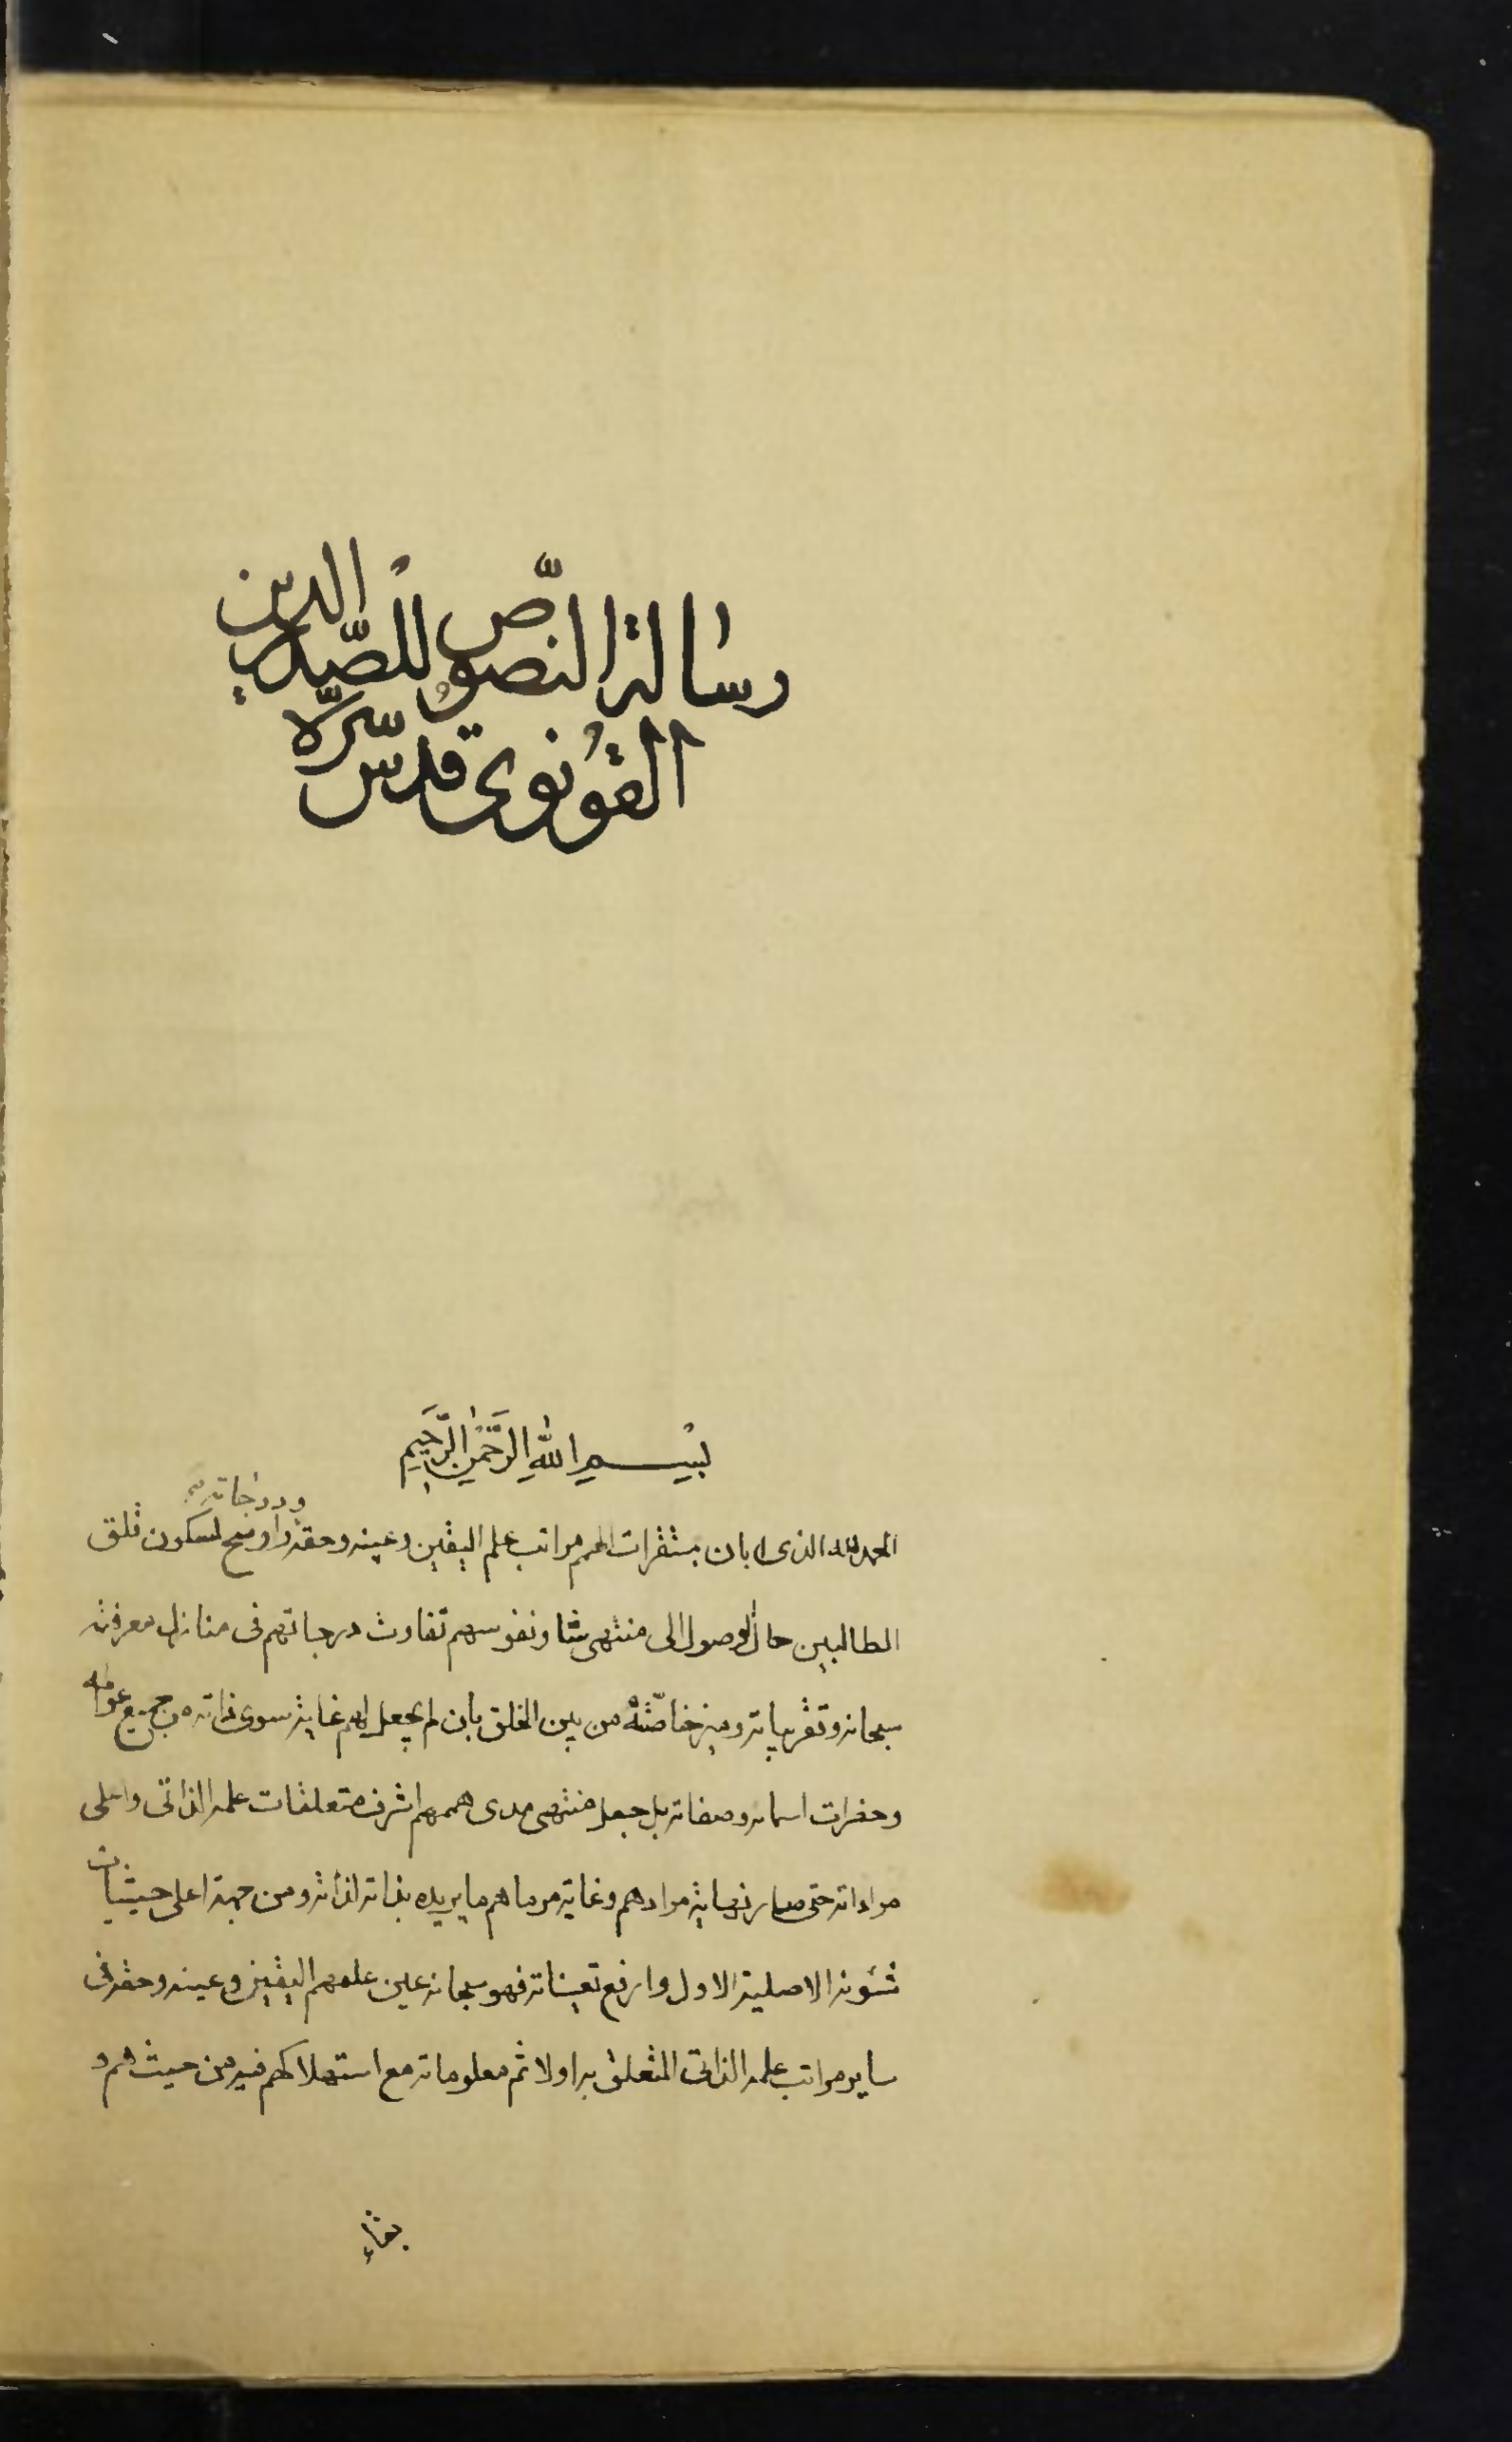 رسالة النصوص للصدر الدين
القونوى قدس سره
بسم الله الرحمن الرحيم
ودرجاته
الحمد لله الذى ابان بمستقرات الهمم مراتب علم اليقين وعينه وحقه واوضح لسكون قلق
الطالبين حال الوصول الى منتهى شاو نفوسهم تفاوت درجاتهم فى منازل معرفته
سبحانه وتقريباته وميز خاصّته من بين الخلق بان لم يجعل لهم غاية سوى ذاته من جميع عوالمه
وحضرات اسمائه وصفاته بل جعل منتهى مدى هممهم اشرف متعلقات علمه الذاتى واعلى
مراداته حتى صار نهاية مرادهم وغاية مرماهم ما يريده بذاته لذاته ومن جهة اعلى حيثيات
شئونه الاصلية الاول وارفع تعيناته فهو سبحانه عين علمهم اليقين وعينه وحقه فى
ساير مراتب علمه الذاتى المتعلق به اولا ثم معلوماته مع استهلاكهم فيه من حيث هم و
بقاء